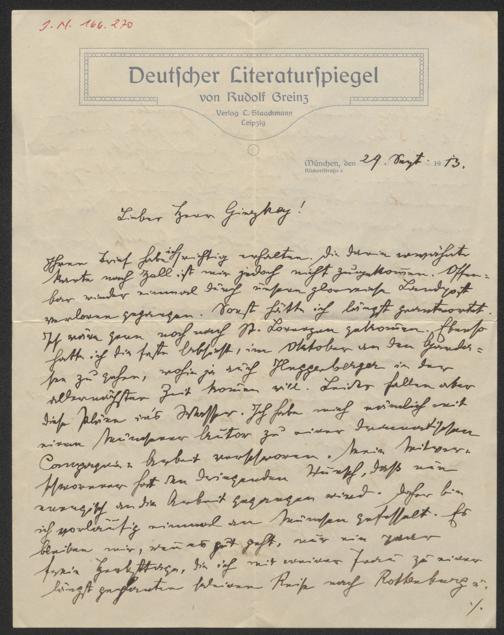 J.N. 166.270
Deutscher Literaturspiegel
von Rudolf Greinz
Verlag L. Staackmann
Leipzig
München, den 29. Sept. 1913.
Lieber Herr Ginzkey!
Ihren Brief habe ich richtig erhalten, die darin erwähnte
Karte nach Hall ist mir jedoch nicht zugekommen. Offen-
bar wieder einmal durch unsere glorreiche Landpost
verloren gegangen. Sonst hätte ich längst geantwortet.
Ich wäre gern noch nach St. Lorenzen gekommen. Ebenso
hatte ich die feste Absicht, im Oktober an den Garda-
see zu gehen, wohin ja auch Huggenberger in der
allernächsten Zeit kommen will. Leider fallen aber
diese Pläne ins Wasser. Ich habe mich nämlich mit
einem Münchener Autor zu einer dramatischen
Compagnie-Arbeit verschworen. Mein Mitver-
schworener hat den dringenden Wunsch, daß nun
energisch an die Arbeit gegangen wird. Daher bin
ich vorläufig einmal an München gefesselt. Es
bleiben mir, wenn es gut geht, nur ein paar
freie Herbsttage, die ich mit meiner Frau zu einer
längst geplanten kleinen Reise nach Rothenburg u.
./.